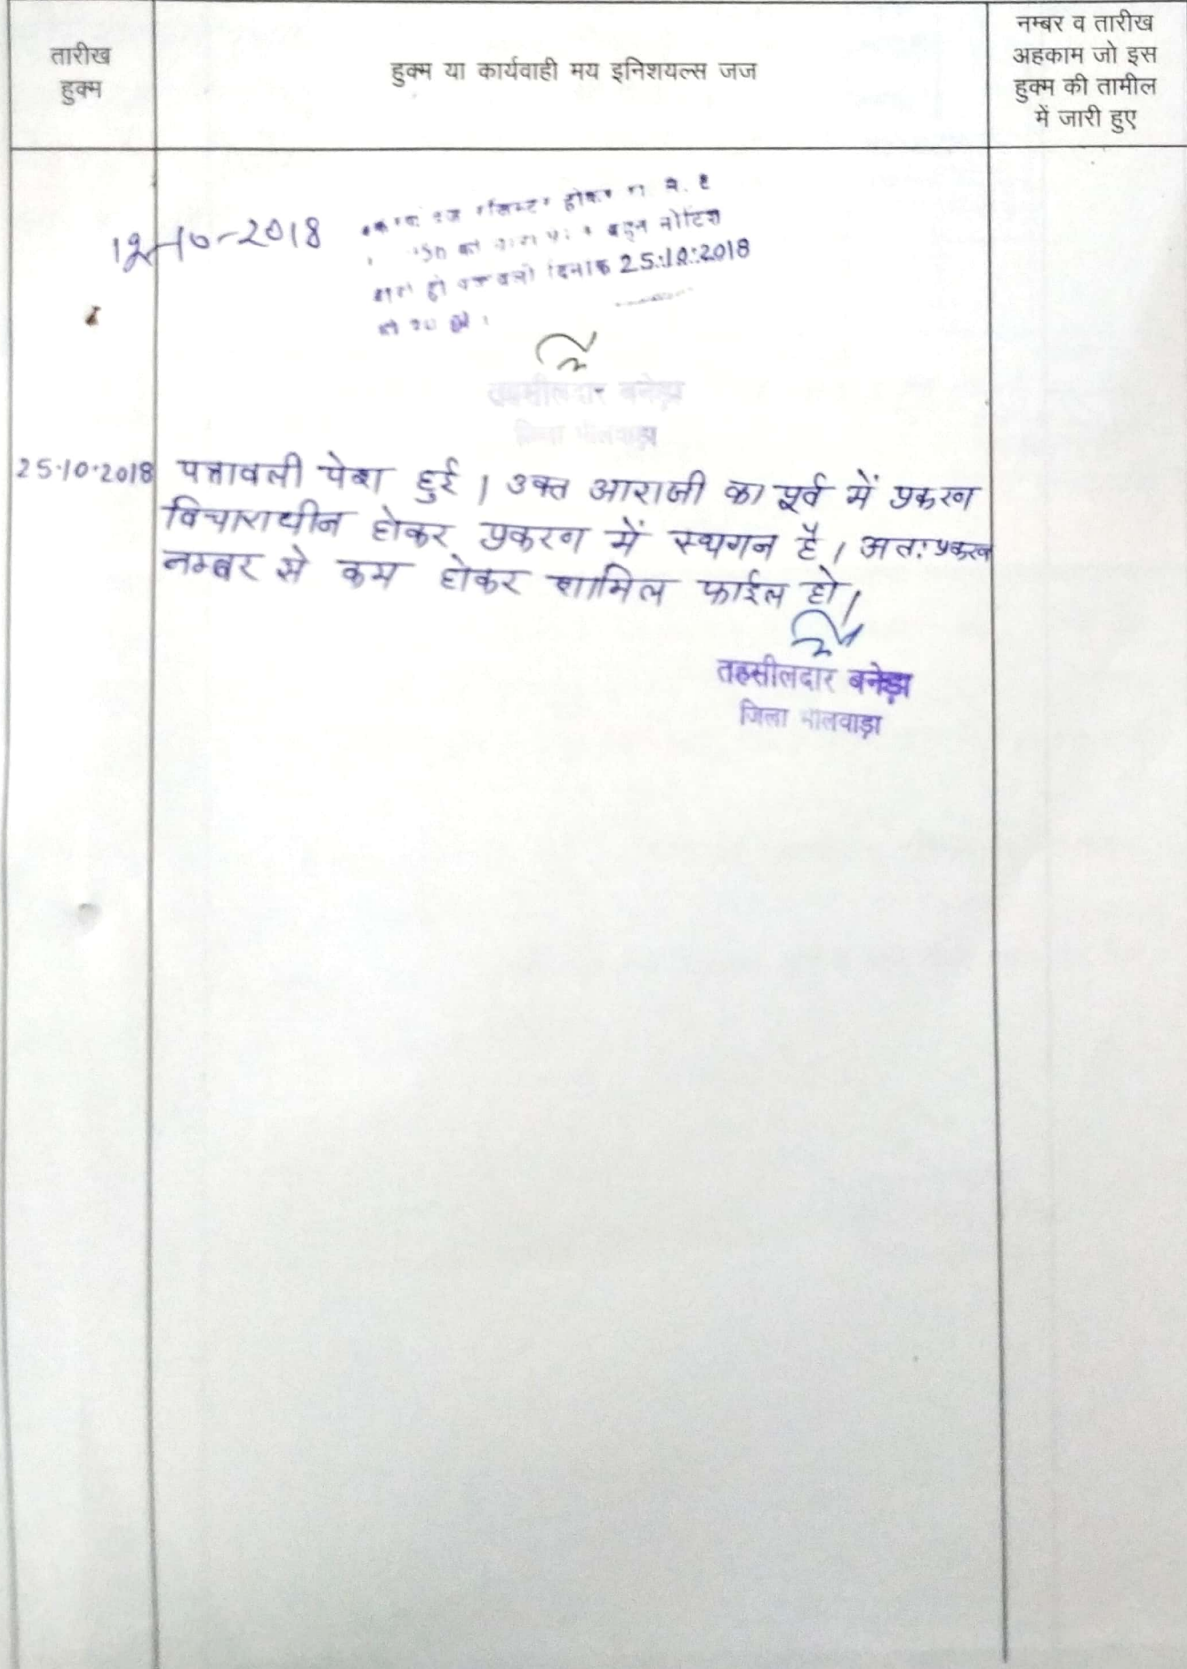 तारीख
हुक्म
हुक्म या कार्यवाही मय इनिशयल्स जज
नम्बर व तारीख
अहकाम जो इस
हुक्म की तामील
में जारी हुए
12-10-2018
होकर
नोटिश
दिनांक 25.10.2018
तहसीलदार बनेड़ा
जिला भीलवाड़ा
25.10.2018 पत्रावली पेश हुई । उक्त आराजी का पूर्व में प्रकरण
विचाराधीन होकर प्रकरण में स्थगन है । अतः प्रकरण
नम्बर से कम होकर शामिल फाईल हो ।
तहसीलदार बनेड़ा
जिला भीलवाड़ा